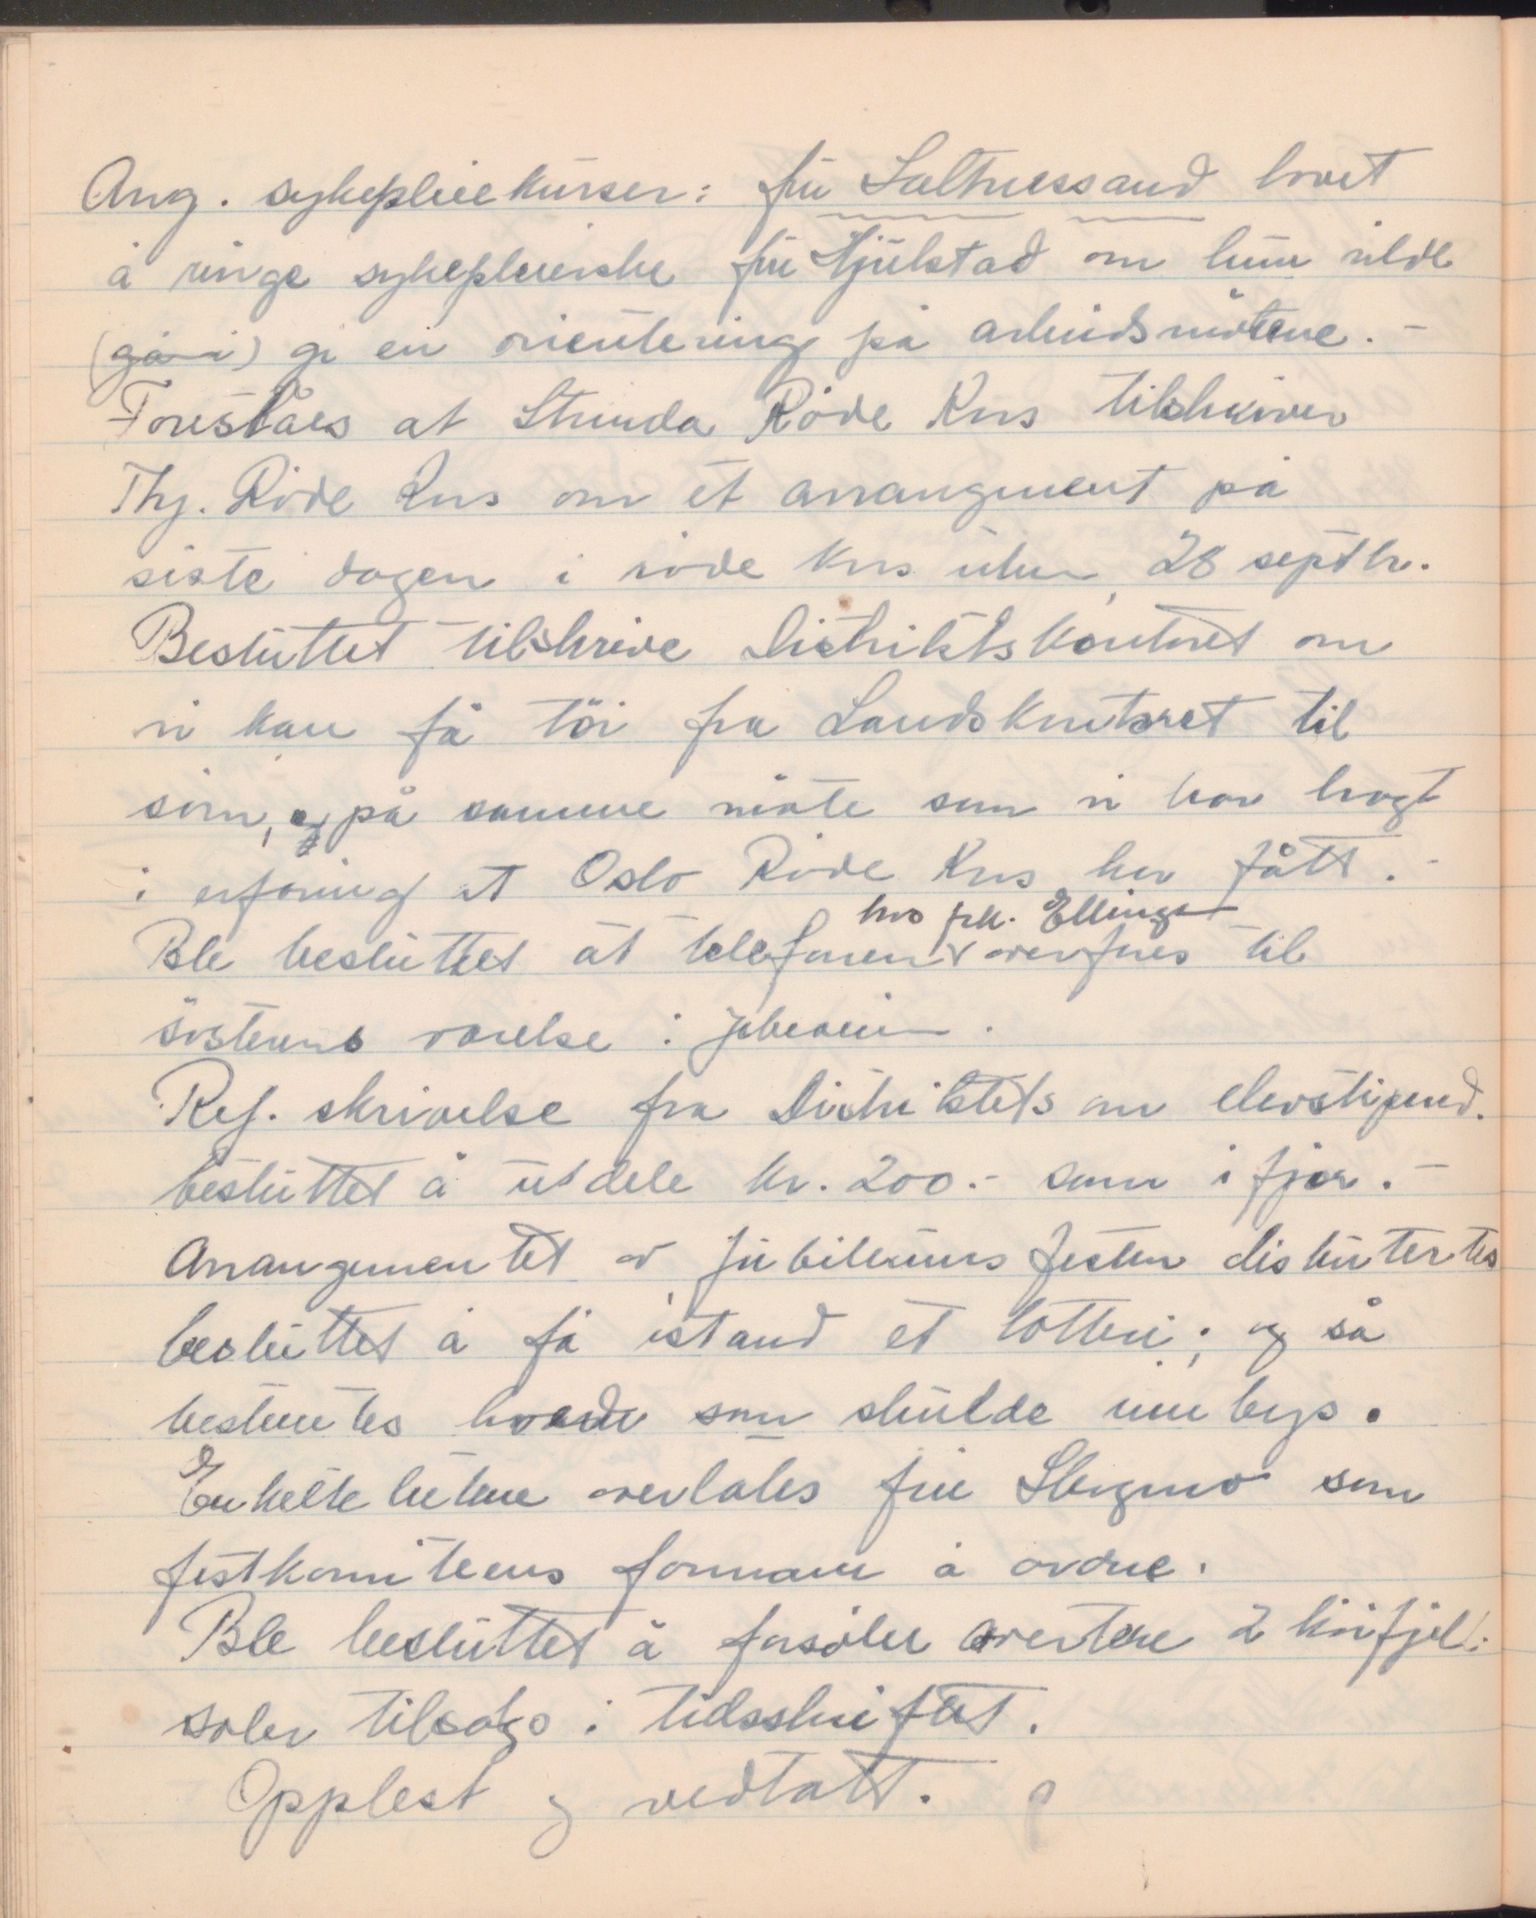 Ang. sykepleiekurser: fru Saltnessand lovet
å ringe sykepleierske fru Hjulstad om hun vilde
(gå i) gi en orientering på arbeidsmøtene. –
Foreslåes at Strinda Røde Kors tilskriver
Thj. Røde Kors om et arrangement på
siste dagen i røde kors uken, 28 septbr.
Besluttet tilskrive Distriktskontoret om
vi kan få tøi fra Landskontoret til
søm, og på samme måte som vi har bragt
i erfaring at Oslo Røde Kors har fått. –
hos frk. Ellings
Ble besluttet at telefonen overføres til
søsterens værelse i
Ref. skrivelse fra Distriktets om elevstipend.
besluttet å utdele kr. 200.- som i fjor. –
Arrangementet av jubileums festen diskutertes
besluttet å få istand et lotteri; og så
bestemtes hvem som skulde innbys.
Enkelte lukene overlates fru Skogmo som
festkomiteens formann å ordne.
Ble besluttet å forsøke avertere 2 høifjell-
soler tilsalgs i tidsskriftet.
Opplest og vedtatt.